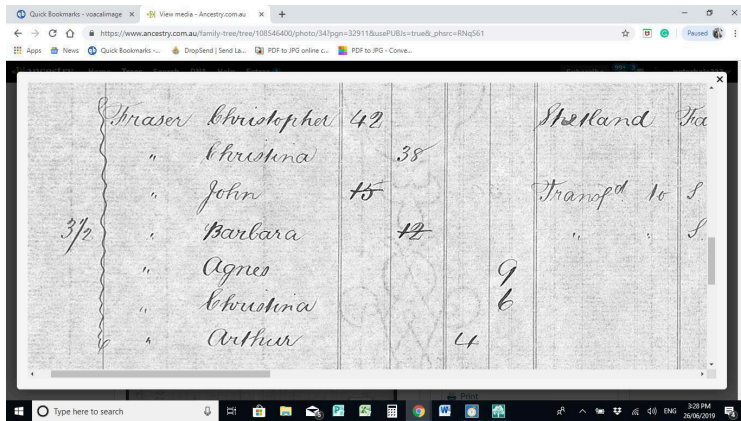 Quick Bookmarks - voacalimage
View media - Ancestry.com.au
https://www.ancestry.com.au/family-tree/tree/108546400/photo/34?pgn=32911&usePUBJs=true&_phsrc=RNq561
Paused
Apps News Quick Bookmarks -... DropSend | Send La... PDF to JPG online c... PDF to JPG - Conve...
Fraser Christopher 42 Shetland Fa
" Christina 38
John 15 Transfd to S.
3/2 " Barbara 12 " " S.
" Agnes 9
" Christina 6
" Arthur 4
Print
Type here to search
ENG
3:28 PM
26/06/2019